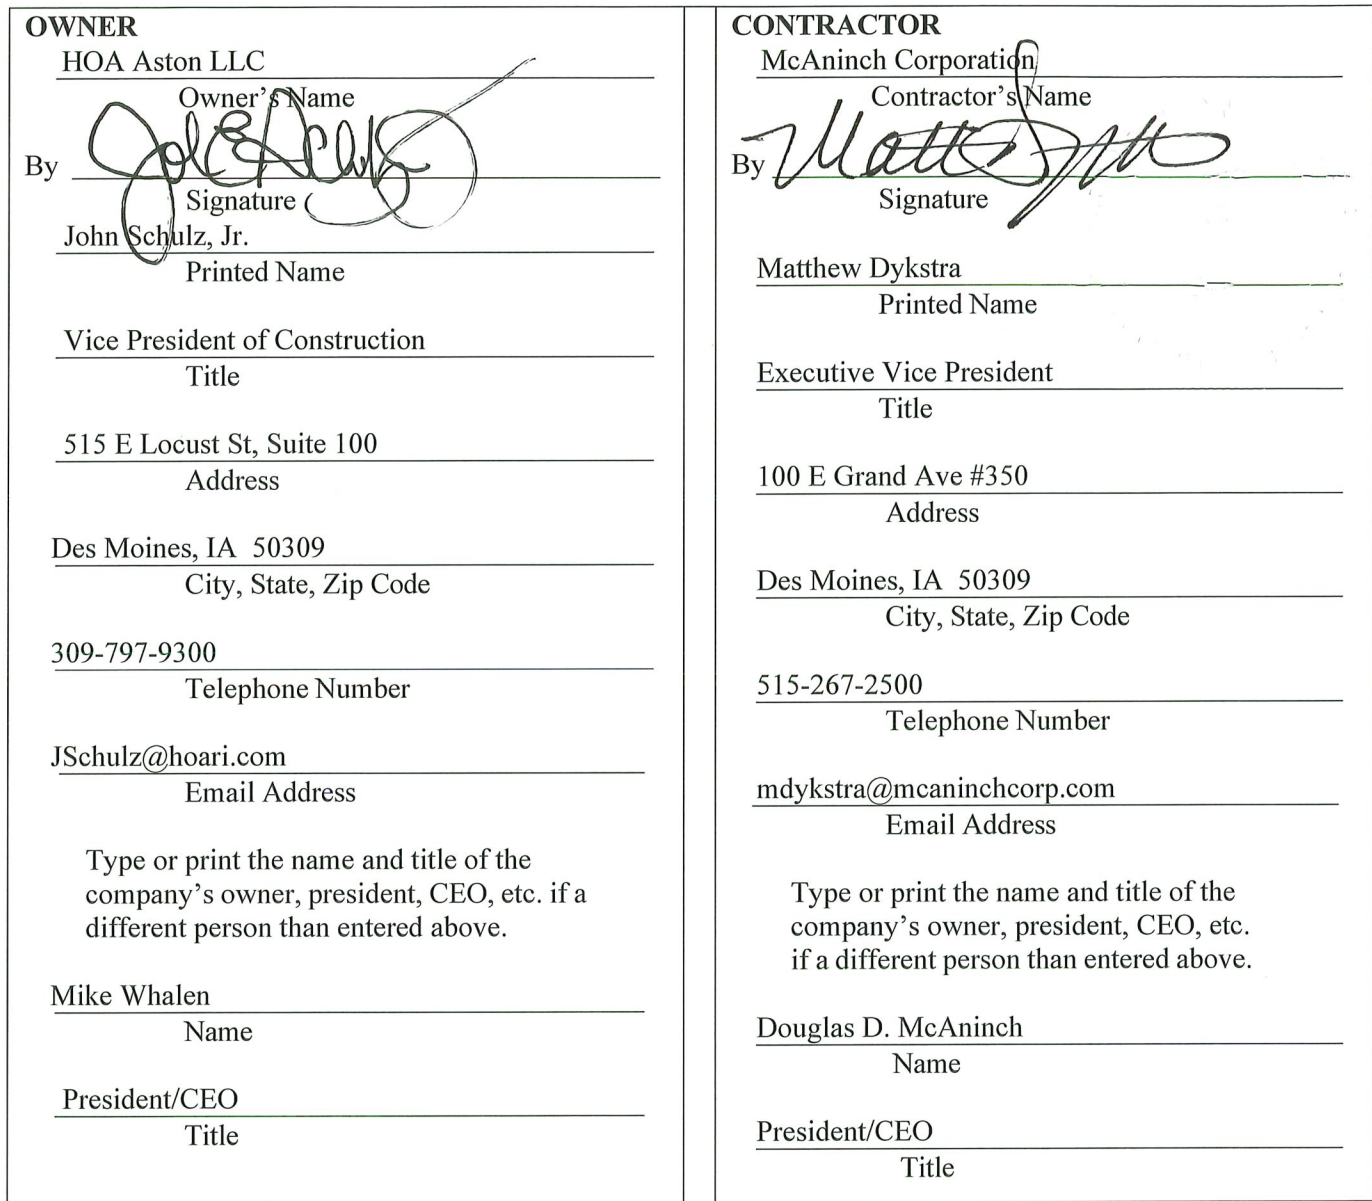 OWNER
HOA Aston LLC
Owner's Name
By
Signature
John Schulz, Jr.
Printed Name
Vice President of Construction
Title
515 E Locust St, Suite 100
Address
Des Moines, IA  50309
City, State, Zip Code
309-797-9300
Telephone Number
JSchulz@hoari.com
Email Address
Type or print the name and title of the
company's owner, president, CEO, etc. if a
different person than entered above.
Mike Whalen
Name
President/CEO
Title
CONTRACTOR
McAninch Corporation
Contractor's Name
By
Signature
Matthew Dykstra
Printed Name
Executive Vice President
Title
100 E Grand Ave #350
Address
Des Moines, IA  50309
City, State, Zip Code
515-267-2500
Telephone Number
mdykstra@mcaninchcorp.com
Email Address
Type or print the name and title of the
company's owner, president, CEO, etc.
if a different person than entered above.
Douglas D. McAninch
Name
President/CEO
Title